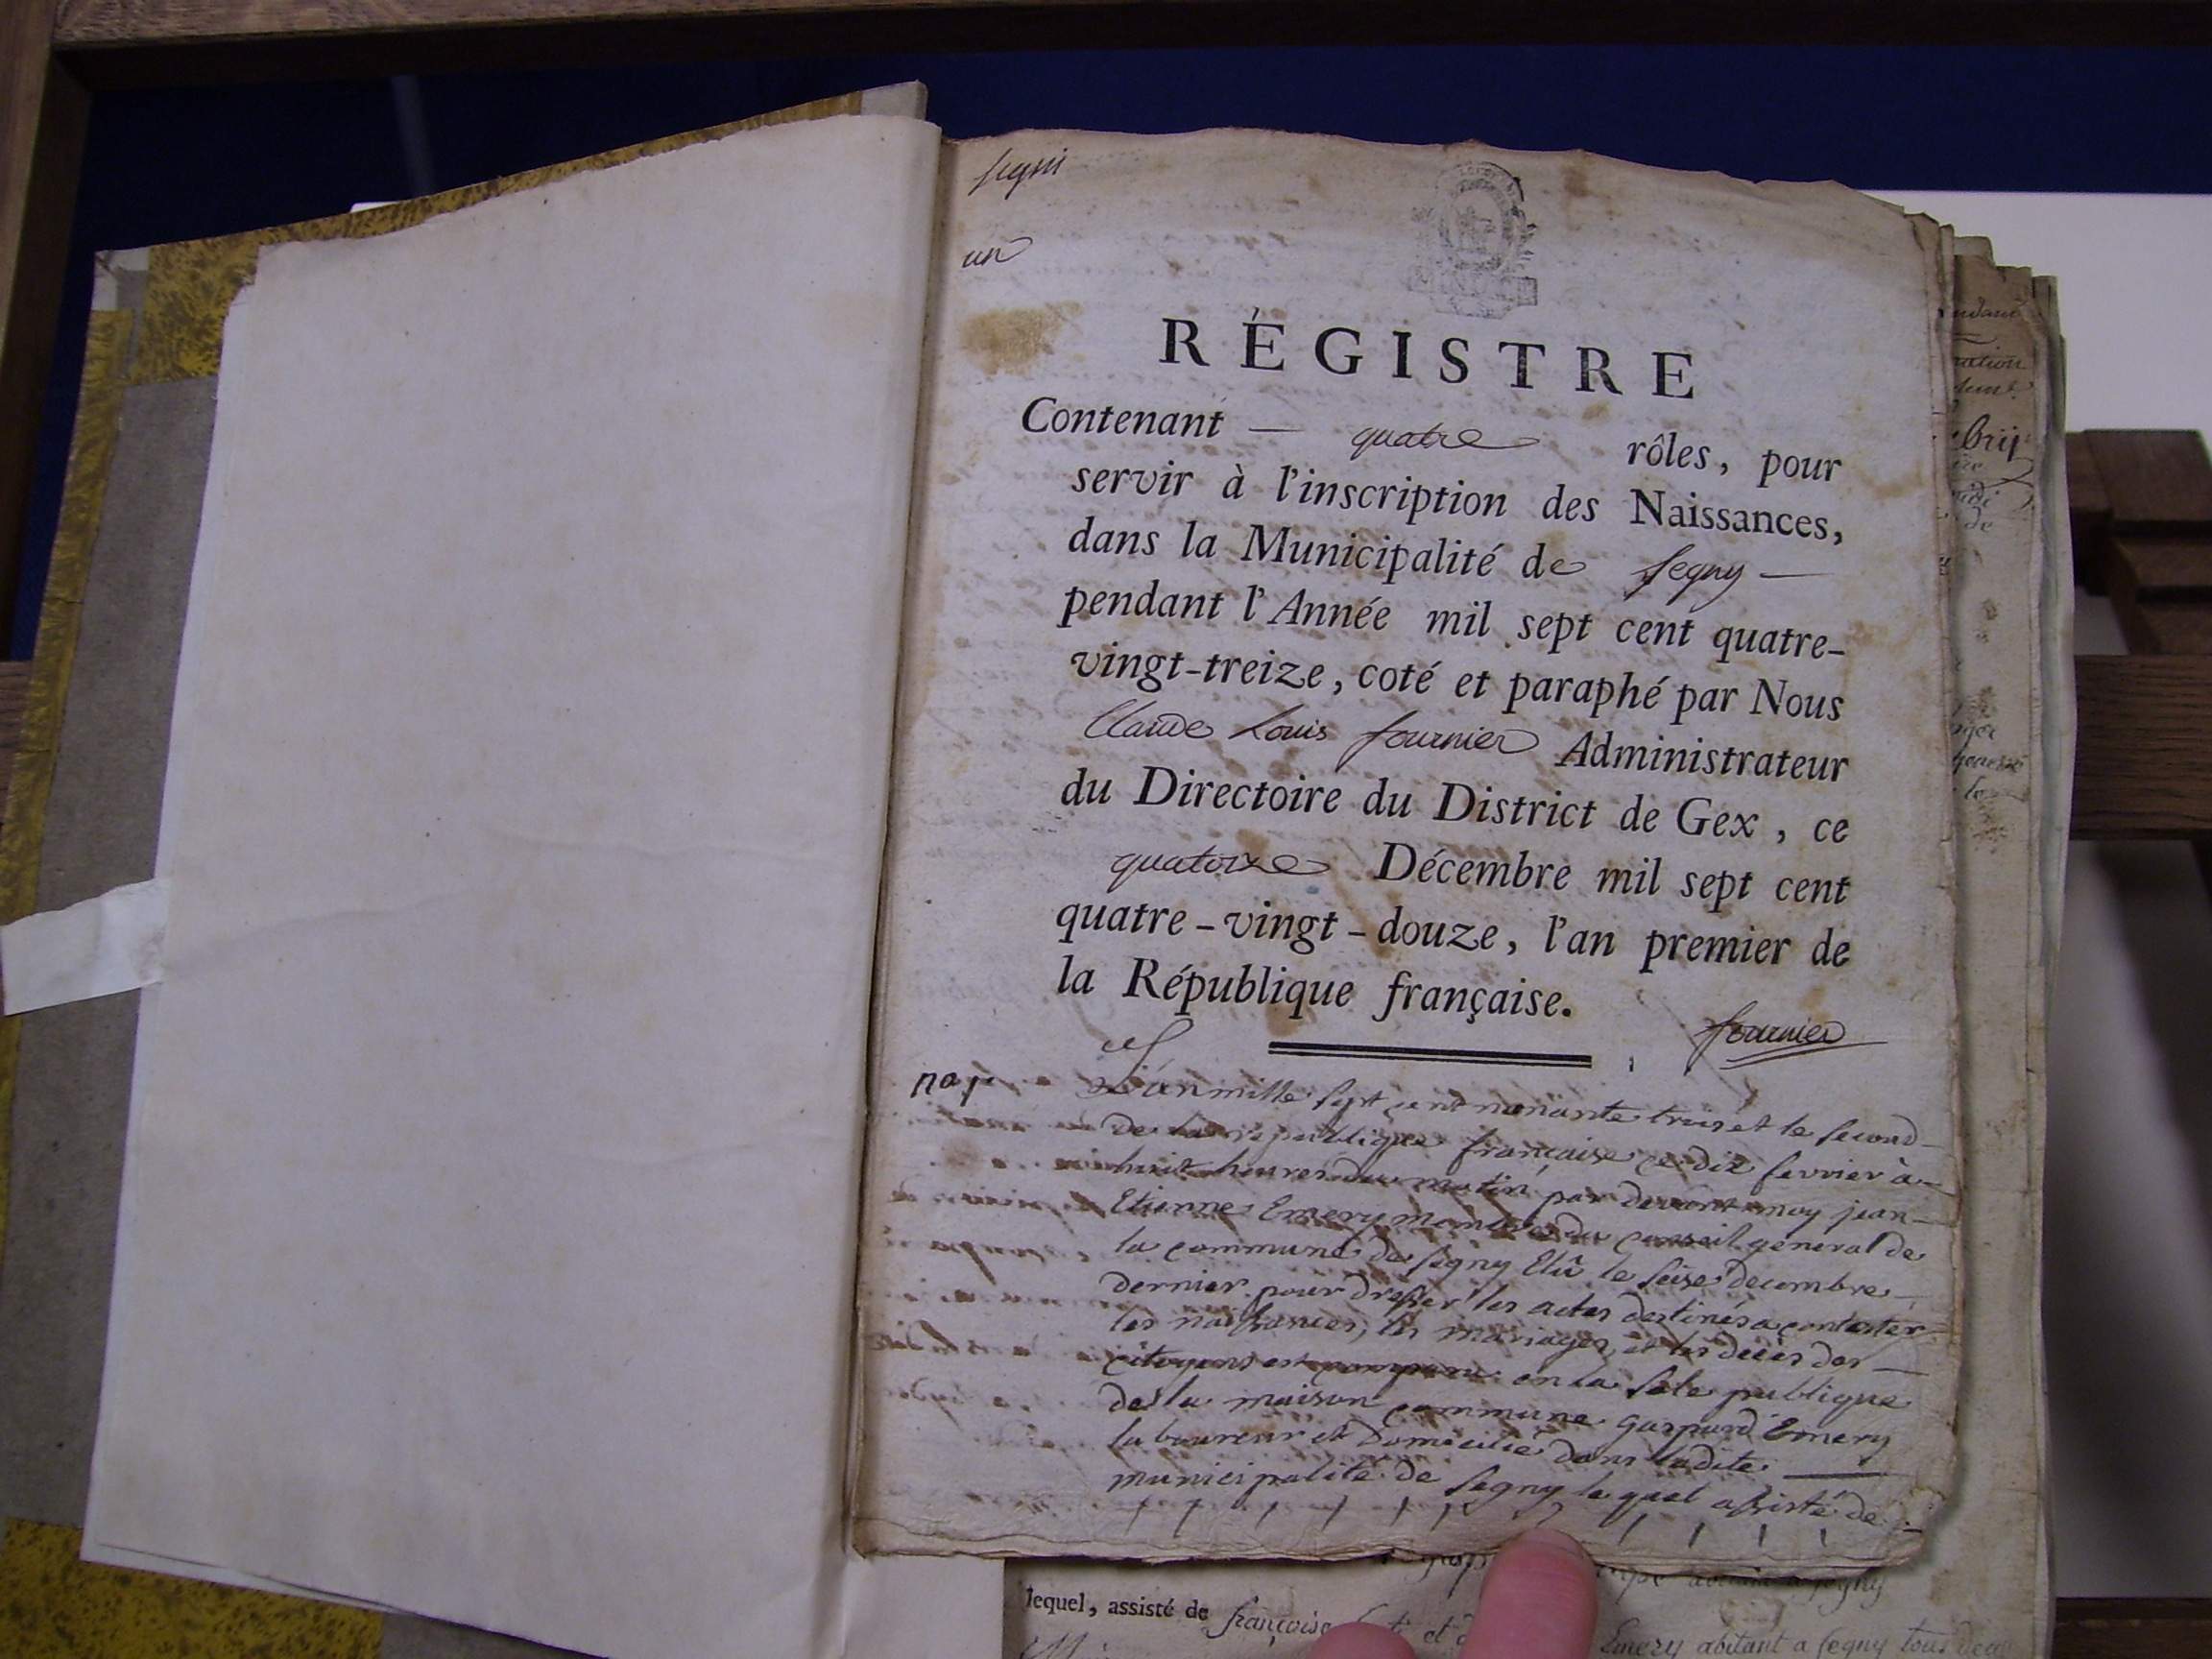 segni
un
RÉGISTRE
Contenant — quatre rôles, pour
servir à l'inscription des Naissances,
dans la Municipalité de Segny —
pendant l'Année mil sept cent quatre-
vingt-treize, coté et paraphé par Nous
Claude Louis fournier Administrateur
du Directoire du District de Gex, ce
quatorze Décembre mil sept cent
quatre-vingt-douze, l'an premier de
la République française.
fournier
L'an mille sept cent nonante trois et le second
de la republique française ce dix fevrier à
huit heures du matin par devant moy jean
Etienne Emery membre du conseil general de
la commune de segny Elû le seise decembre
dernier pour dresser les actes destinés a constater
les naissances, les mariages, et les décès des
citoyens est comparu en la sale publique
de la maison commune gaspard Emery
laboureur et Domicilié dans ladite
municipalité de segny le quel assisté de
lequel, assisté de françoise et
Emery abitant a segny tous deux